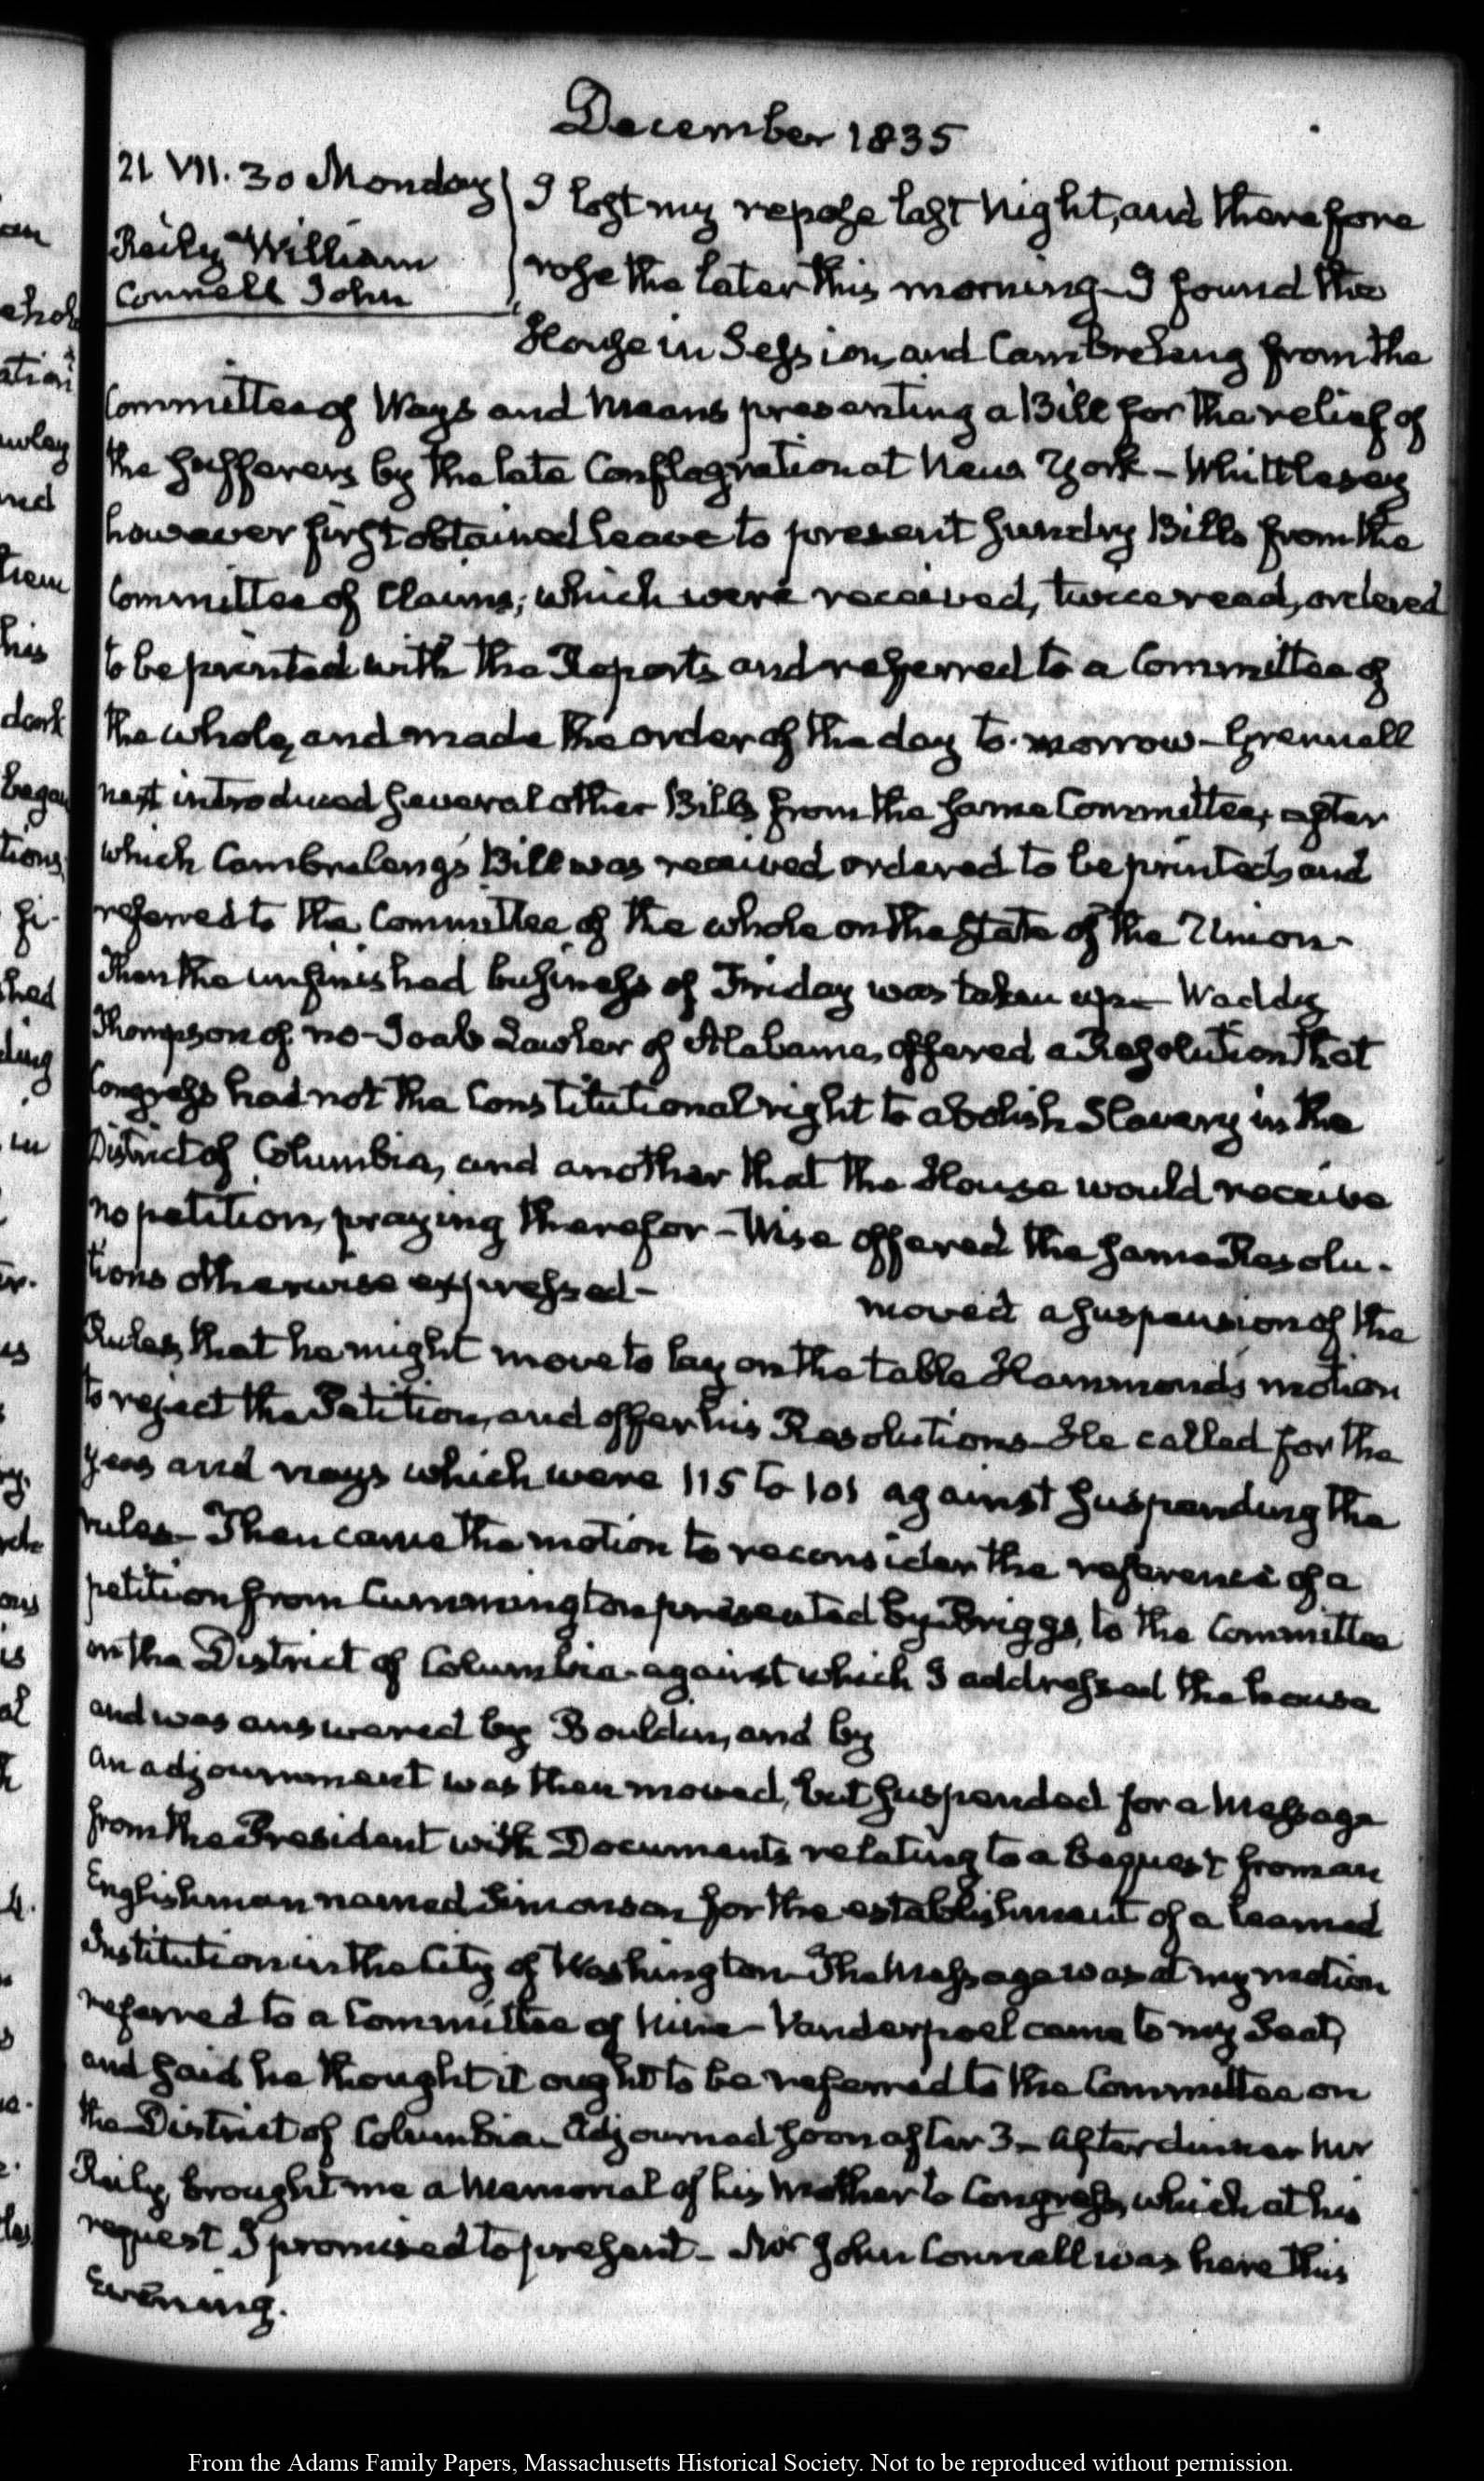 December 1835
21. VII. 30 Monday
Reily William
Connell John
I lost my repose last Night, and therefore
rose the later this morning - I found the
House in Session, and Cambreleng from the
Committee of Ways and Means presenting a Bill for the relief of
the sufferers by the late Conflagration at New York - Whittlesey
however first obtained leave to present sundry Bills from the
Committee of Claims; which were received, twice read, ordered
to be printed with the Reports and referred to a Committee of
the whole, and made the order of the day to-morrow - Grennell
next introduced several other Bills from the same Committee; after
which Cambreleng's Bill was received ordered to be printed, and
referred to the Committee of the whole on the State of the Union -
Then the unfinished business of Friday was taken up - Waddy
Thompson of no - Joab Lawler of Alabama, offered a Resolution that
Congress had not the Constitutional right to abolish Slavery in the
District of Columbia, and another that the House would receive
no petition, praying therefor - Wise offered the same Resolu-
tions otherwise expressed - moved a suspension of the
Rules, that he might move to lay on the table Hammond's motion
to reject the Petition, and offer his Resolutions - He called for the
yeas and nays which were 115 to 101 against suspending the
rules - Then came the motion to reconsider the reference of a
petition from Cummington presented by Briggs, to the Committee
on the District of Columbia - against which I addressed the house
and was answered by Bouldin, and by
an adjournment was then moved, but suspended for a Message
from the President with Documents relating to a bequest from an
Englishman named Simonson for the establishment of a learned
Institution in the City of Washington - The Message was at my motion
referred to a Committee of Nine - Vanderpoel came to my Seat,
and said he thought it ought to be referred to the Committee on
the District of Columbia - Adjourned soon after 3 - After dinner Mr
Reily, brought me a Memorial of his Mother to Congress, which at his
request I promised to present - Mr John Connell was here this
Evening.
From the Adams Family Papers, Massachusetts Historical Society. Not to be reproduced without permission.